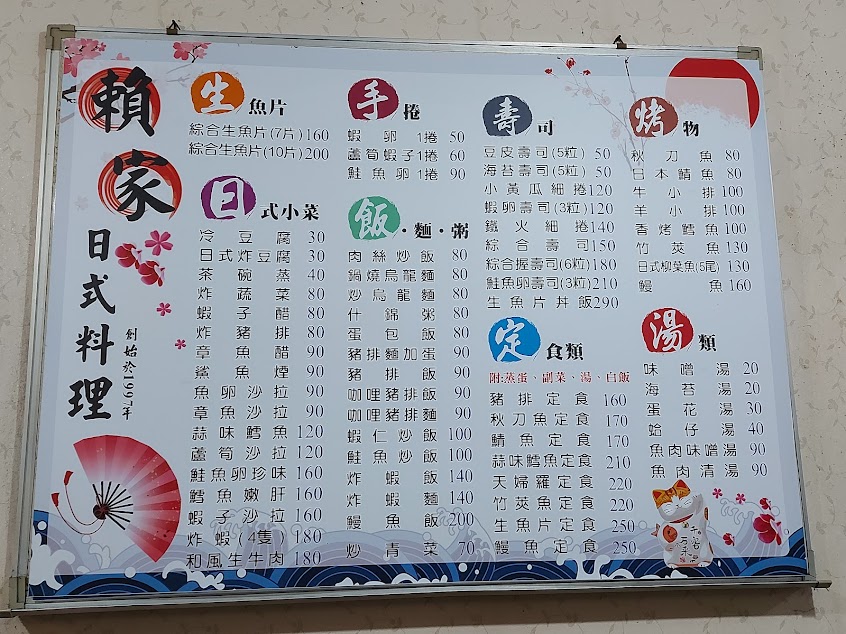 賴家
日式料理
創始於1997年
生魚片
綜合生魚片(7片)160
綜合生魚片(10片)200
日式小菜
冷豆腐 30
日式炸豆腐 30
茶碗蒸 40
炸蔬菜 80
蝦子醋 80
炸豬排 80
章魚醋 90
鯊魚煙 90
魚卵沙拉 90
章魚沙拉 90
蒜味鱈魚 120
蘆筍沙拉 120
鮭魚卵珍味 160
鱈魚嫩肝 160
蝦子沙拉 160
炸蝦(4隻) 180
和風生牛肉 180
手捲
蝦卵1捲 50
蘆筍蝦子1捲 60
鮭魚卵1捲 90
飯·麵·粥
肉絲炒飯 80
鍋燒烏龍麵 80
炒烏龍麵 80
什錦粥 80
蛋包飯 80
豬排麵加蛋 90
豬排飯 90
咖哩豬排飯 90
咖哩豬排麵 90
蝦仁炒飯 100
鮭魚炒飯 100
炸蝦飯 140
炸蝦麵 140
鰻魚飯 200
炒青菜 70
壽司
豆皮壽司(5粒) 50
海苔壽司(5粒) 50
小黃瓜細捲 120
蝦卵壽司(3粒)120
鐵火細捲 140
綜合壽司 150
綜合握壽司(6粒)180
鮭魚卵壽司(3粒)210
生魚片丼飯 290
定食類
附:蒸蛋、副菜、湯、白飯
豬排定食 160
秋刀魚定食 170
鯖魚定食 170
蒜味鱈魚定食 210
天婦羅定食 220
竹莢魚定食 220
生魚片定食 250
鰻魚定食 250
烤物
秋刀魚 80
日本鯖魚 80
牛小排 100
羊小排 100
香烤鱈魚 100
竹莢魚 130
日式柳葉魚(5尾) 130
鰻魚 160
湯類
味噌湯 20
海苔湯 20
蛋花湯 30
蛤仔湯 40
魚肉味噌湯 90
魚肉清湯 90